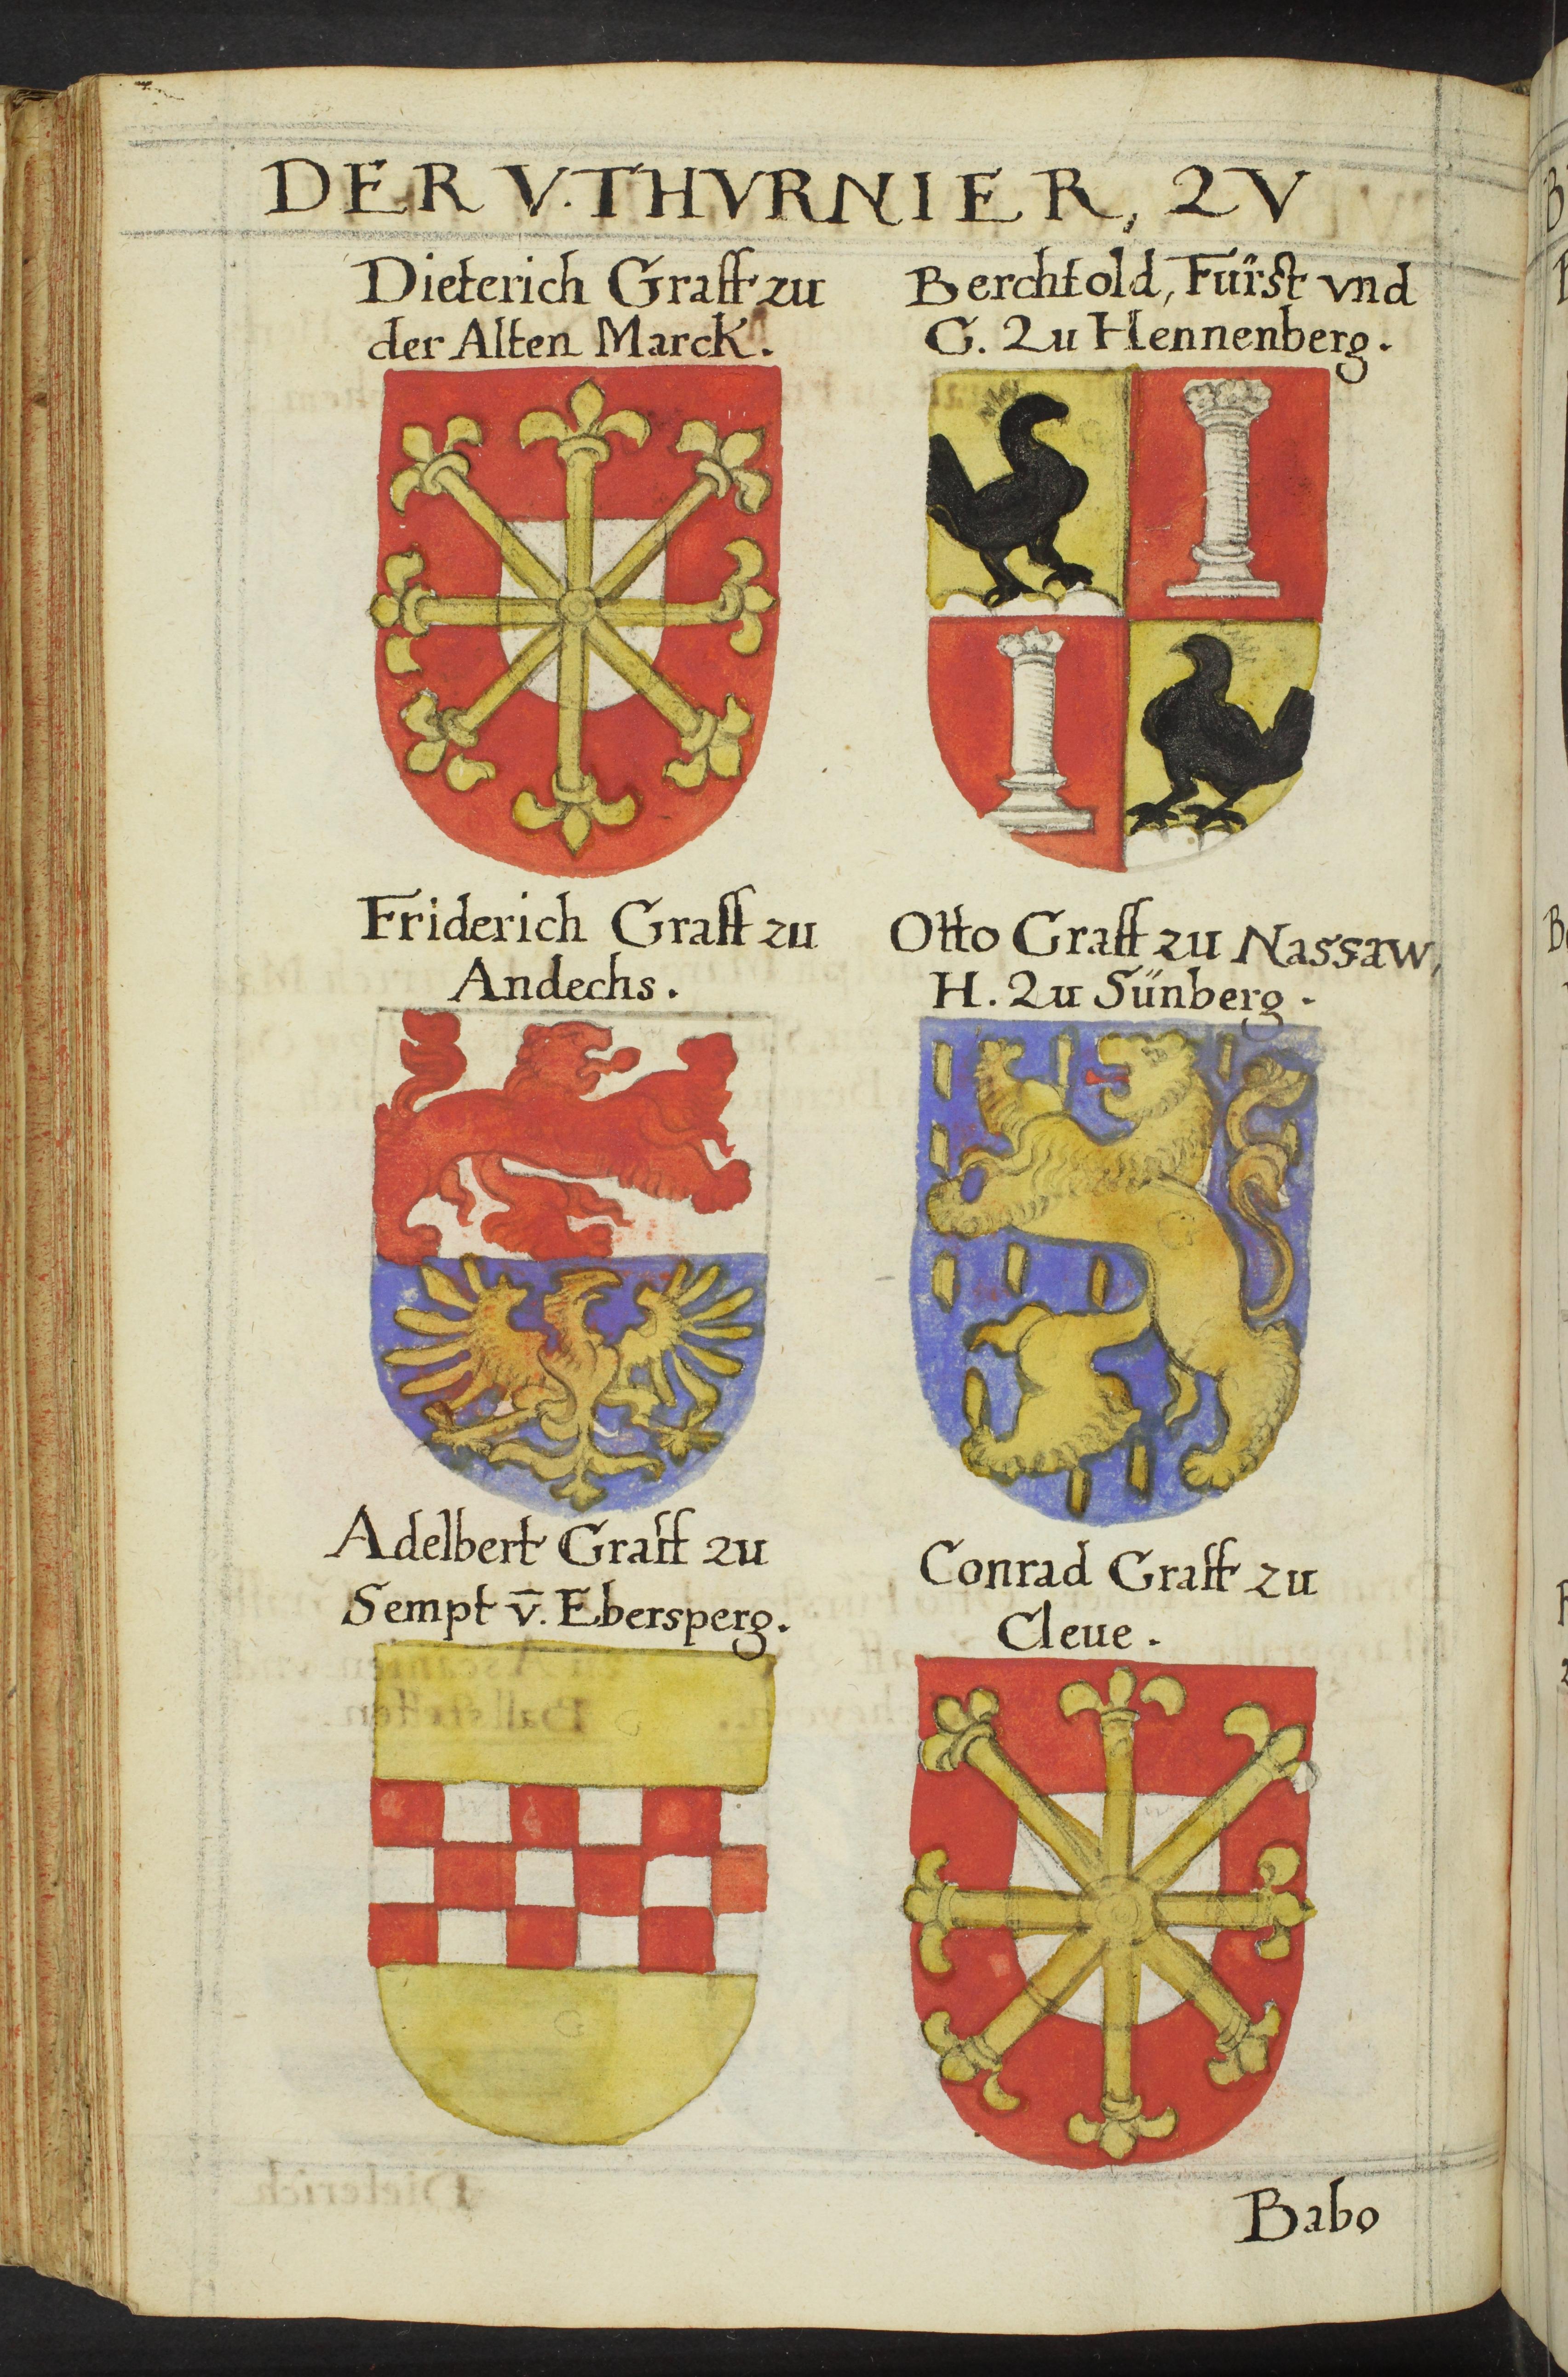 DER V. THVRNIER, ZV
Dieterich Graff zu
der Alten Marck.
Berchtold, Fürst vnd
G. Zu Hennenberg.
Friderich Graff zu
Andechs.
Otto Graff zu Nassaw,
H. Zu Sünberg.
Adelbert Graff zu
Sempt v̄. Ebersperg.
Conrad Graff zu
Cleue.
Babo